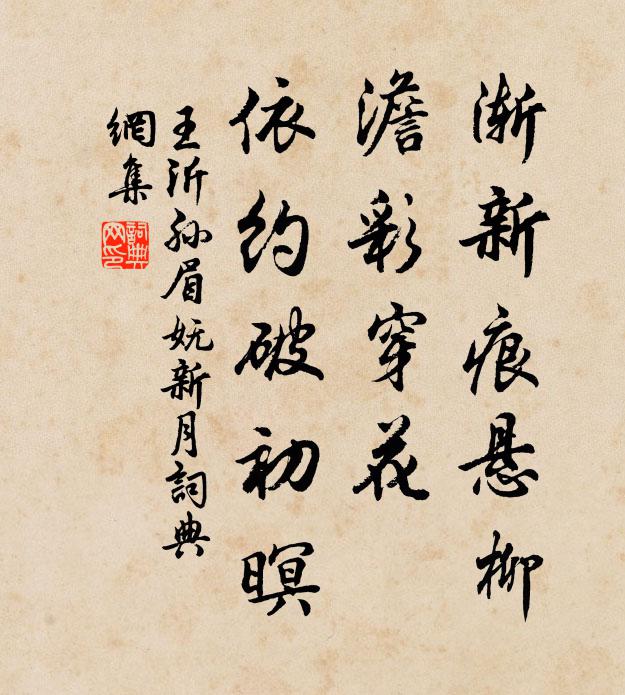 渐新痕悬柳
澹彩穿花
依约破初暝
王沂孙眉妩新月詞典
網集
詞典
网印